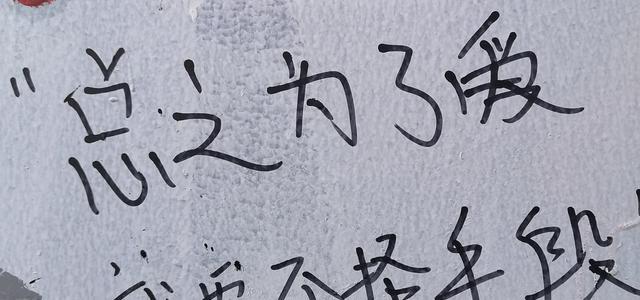 "总之为了爱
我要不择手段